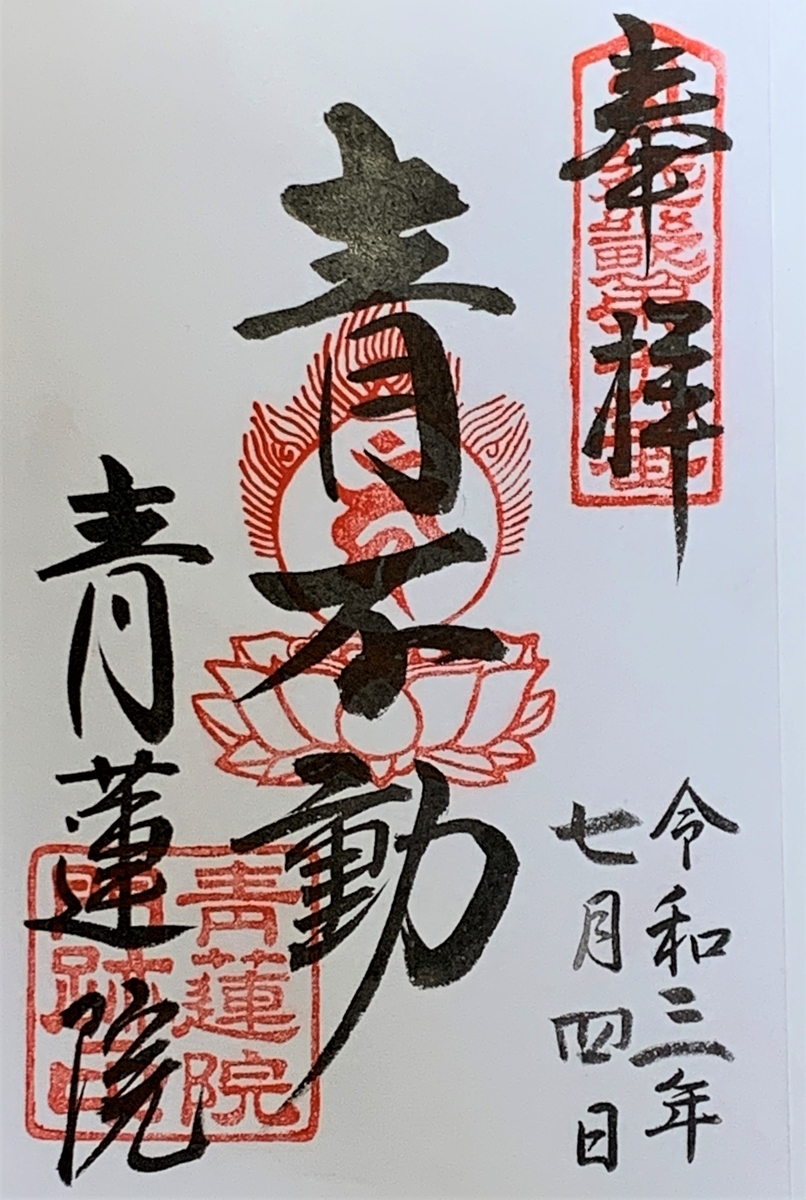 奉拝
令和三年
七月四日
青不動
青蓮院
青蓮院
門跡印